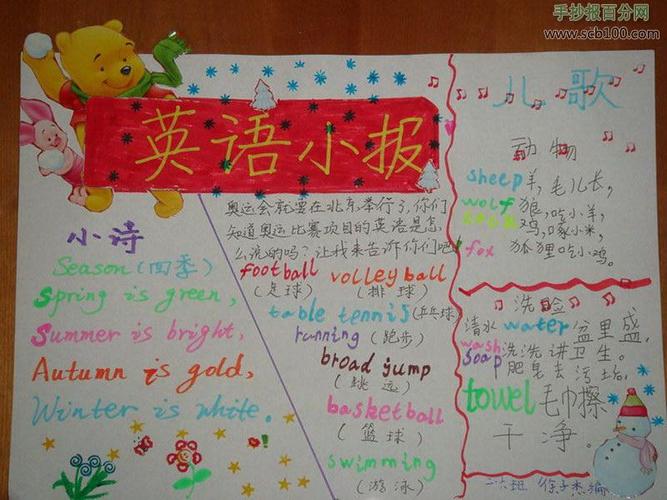 手抄报百分网
www.scb100.com
英语小报
小诗
Season(四季)
Spring is green,
Summer is bright,
Autumn is gold,
Winter is white.
奥运会就要在北京举行了,你们
知道奥运比赛项目的英语是怎
么说的吗?让我来告诉你们吧!
football
(足球)
volleyball
(排球)
table tennis(乒乓球)
running(跑步)
broad jump
(跳远)
basketball
(篮球)
swimming
(游泳)
儿歌
动物
sheep羊,毛儿长,
wolf狼,吃小羊,
鸡,啄小米,
fox 狐狸吃小鸡。
洗脸
清水water盆里盛,
wash洗洗讲卫生。
soap肥皂去污垢,
towel毛巾擦
干净。